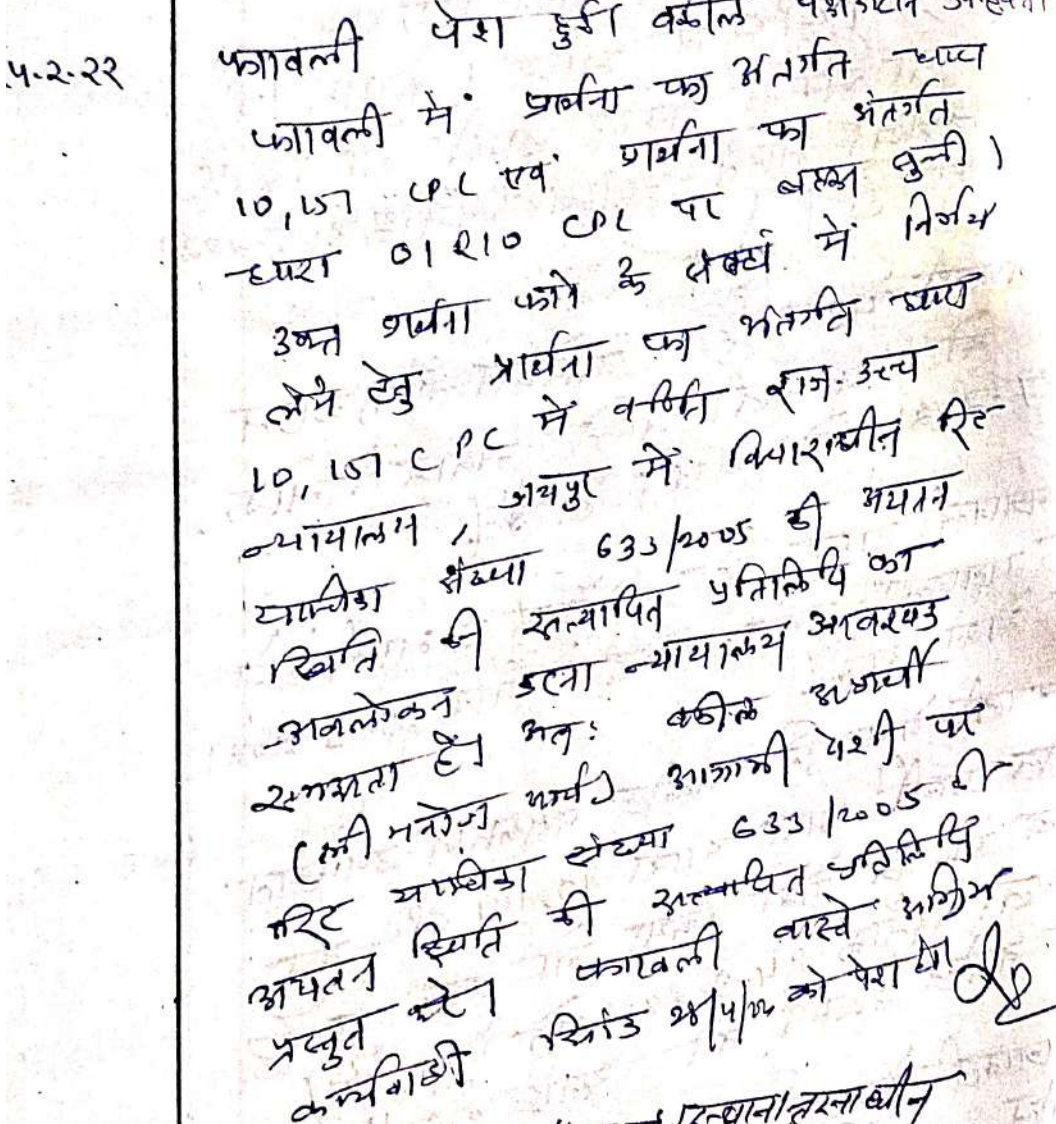 ५-२-२२
पत्रावली पेश हुई। वकील
पत्रावली में प्रार्थना पत्र अंतर्गत धारा
10, 151 CPC एवं प्रार्थना पत्र अंतर्गत
धारा 01 R10 CPC पर बहस सुनी।
उक्त प्रार्थना पत्रो के संबंध में निर्णय
लेने हेतु प्रार्थना पत्र अंतर्गत धारा
10, 151 CPC में वर्णित राज. उच्च
न्यायालय, जयपुर में विचाराधीन रिट
याचिका संख्या 633/2005 की अद्यतन
स्थिति की सत्यापित प्रतिलिपि का
अवलोकन करना न्यायालय आवश्यक
समझता है। अतः वकील अप्रार्थी
(श्री मनोज) आगामी पेशी पर
रिट याचिका संख्या 633/2005 की
अद्यतन स्थिति की सत्यापित प्रतिलिपि
प्रस्तुत करे। पत्रावली वास्ते अग्रिम
कार्यवाही दिनांक 28/4/22 को पेश हो।